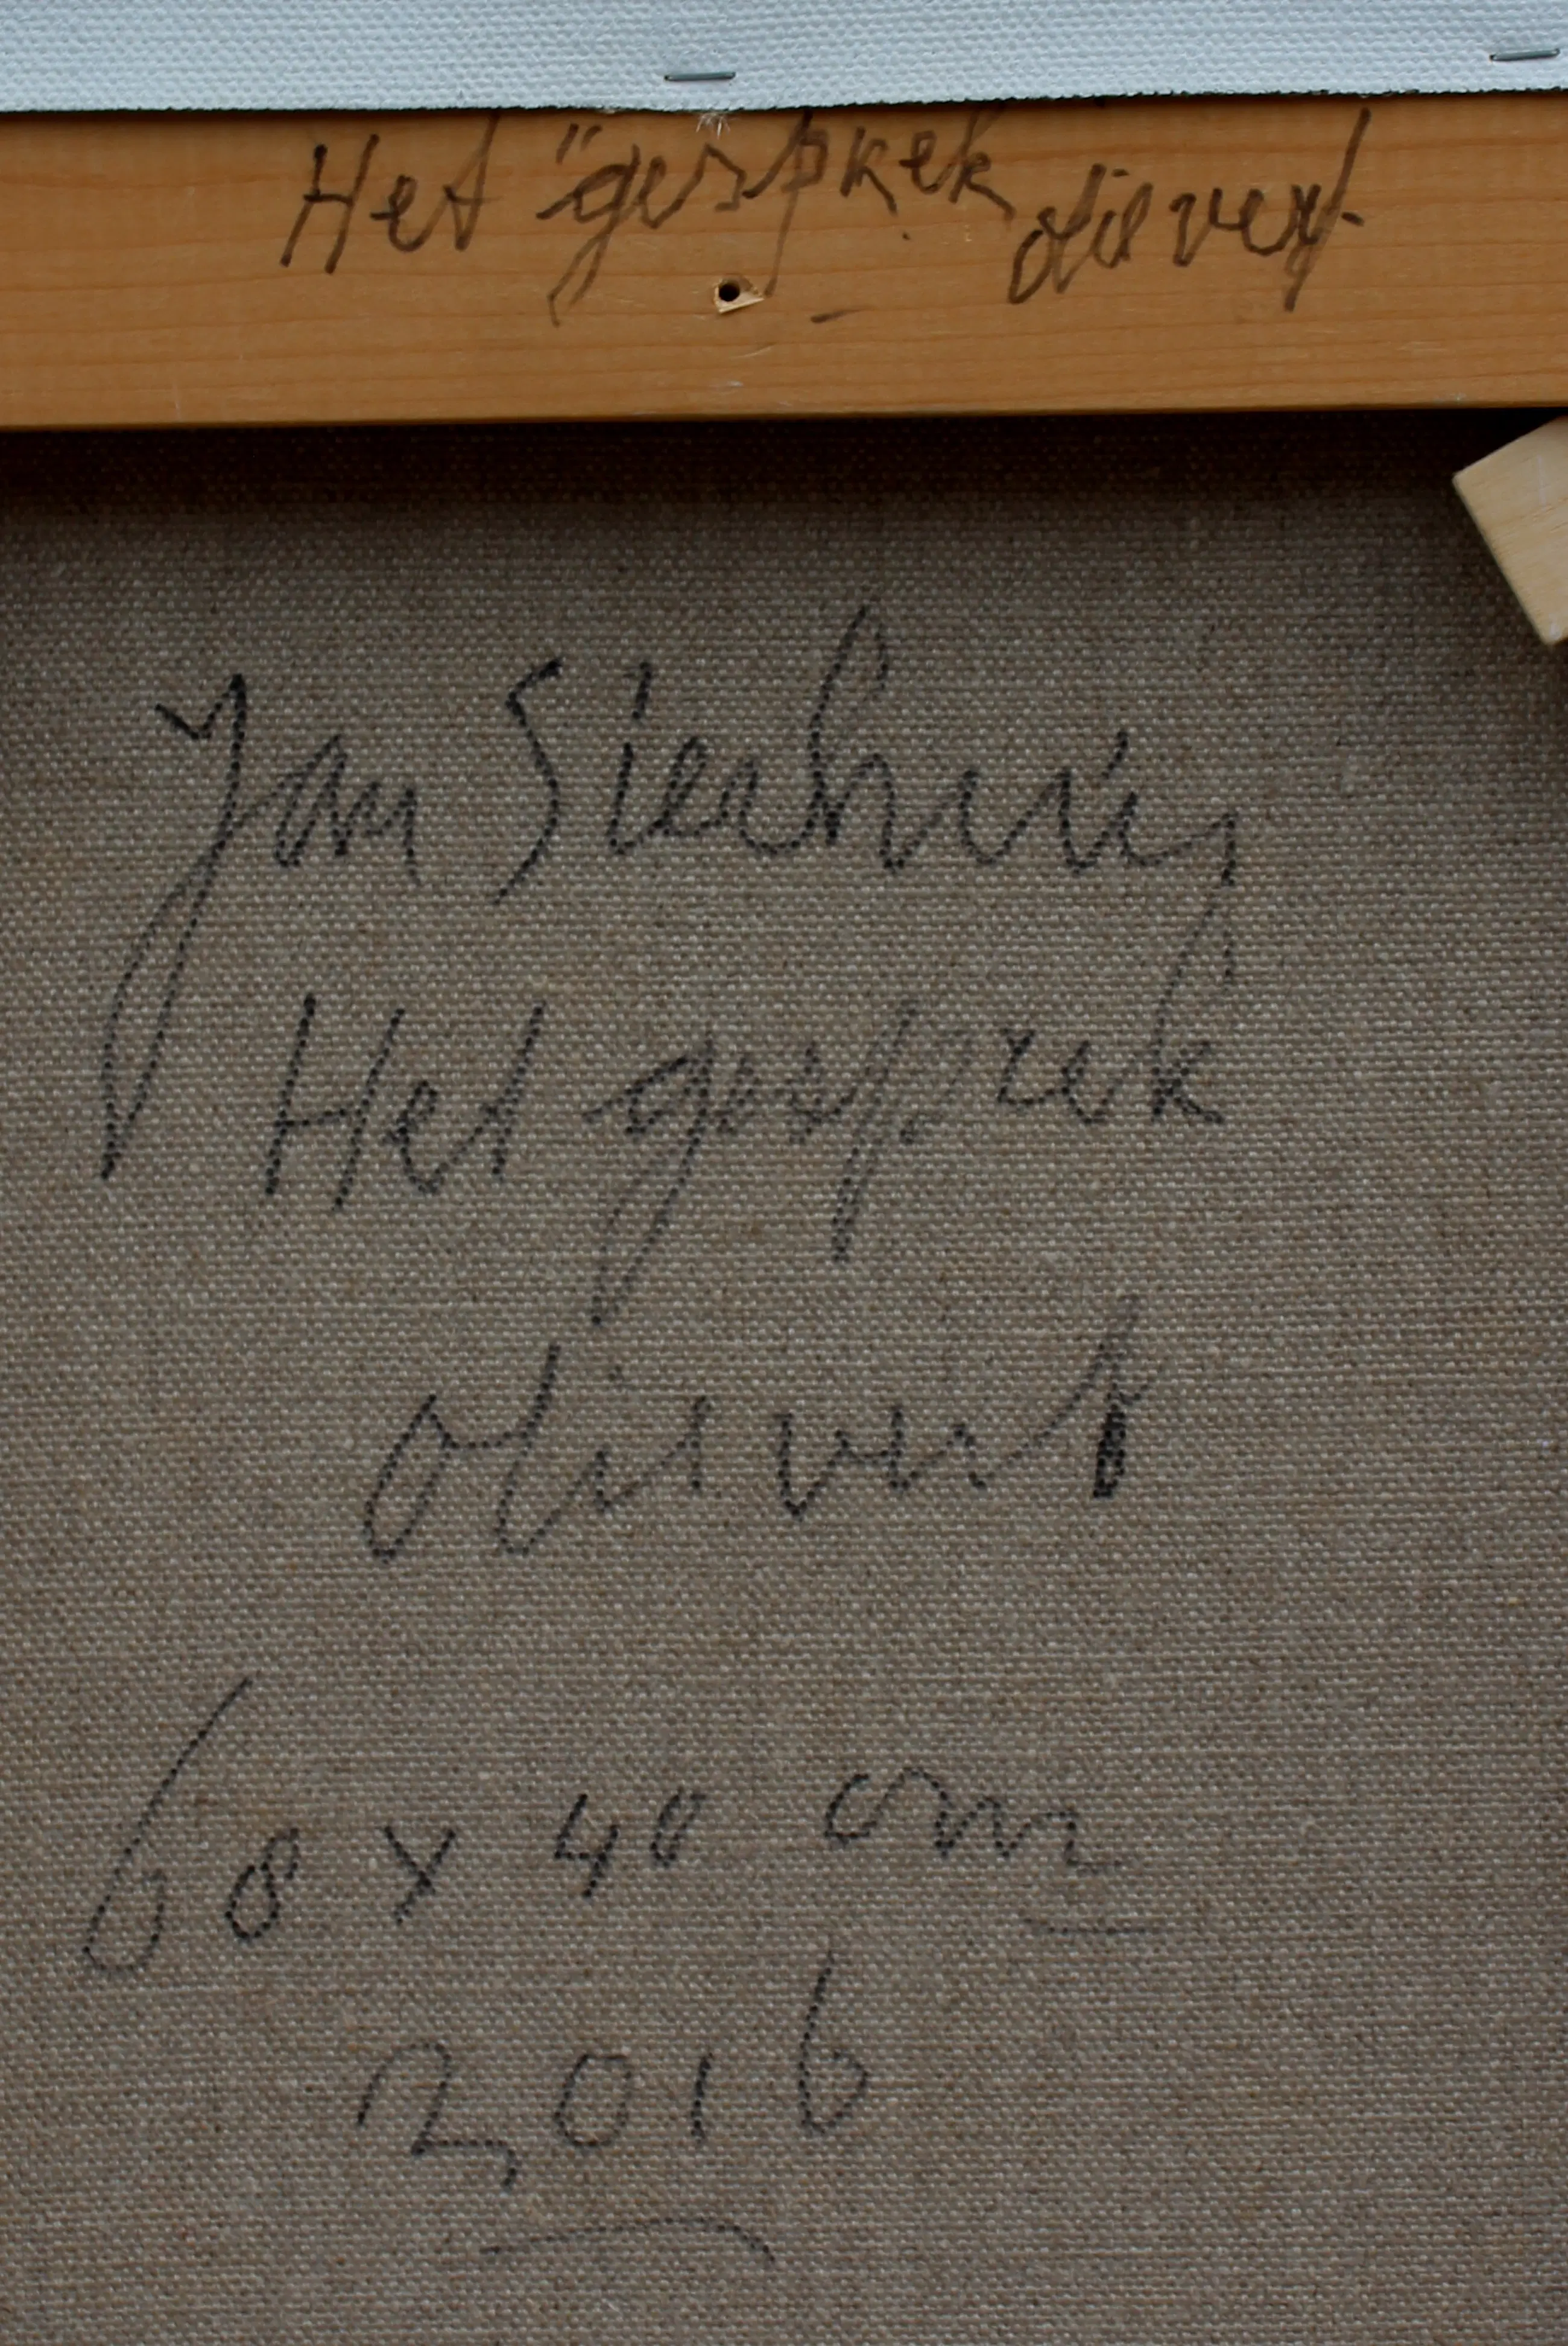 Het "gesprek olieverf
Jan Sierhuis
Het gesprek
olieverf
60 x 40 cm
2016